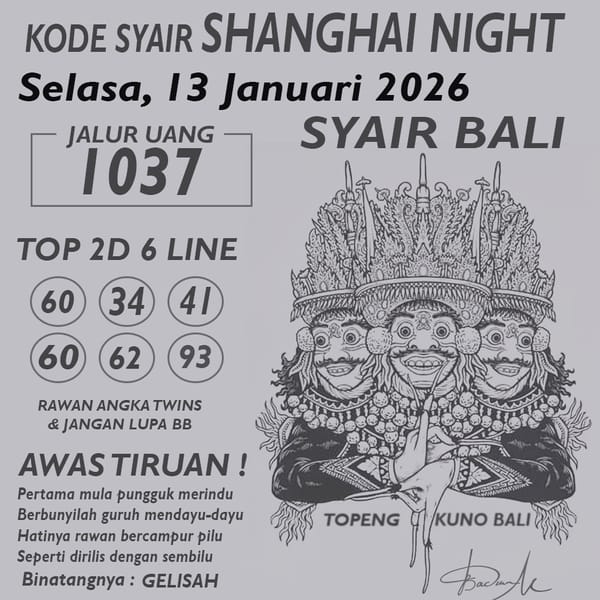 KODE SYAIR SHANGHAI NIGHT
Selasa, 13 Januari 2026
SYAIR BALI
JALUR UANG
1037
TOP 2D 6 LINE
60 34 41
60 62 93
RAWAN ANGKA TWINS
& JANGAN LUPA BB
AWAS TIRUAN !
Pertama mula pungguk merindu
Berbunyilah guruh mendayu-dayu
Hatinya rawan bercampur pilu
Seperti dirilis dengan sembilu
Binatangnya : GELISAH
TOPENG KUNO BALI